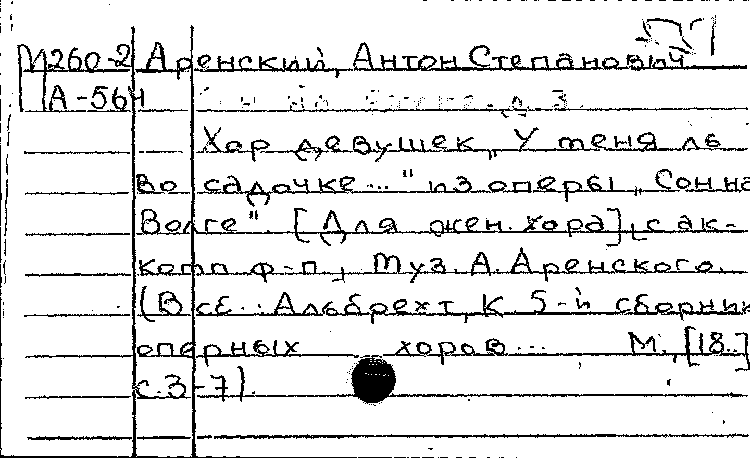 М260-2 Аренский, Антон Степанович
А-564
Хор девушек „У меня ль
во садочке..." из оперы „Сон на
Волге". [Для жен. хора], с ак-
комп. ф-п., муз. А. Аренского.
(В сб.: Альбрехт, К. 5-й сборник
оперных хоров... М., [18..]
с. 3-7).